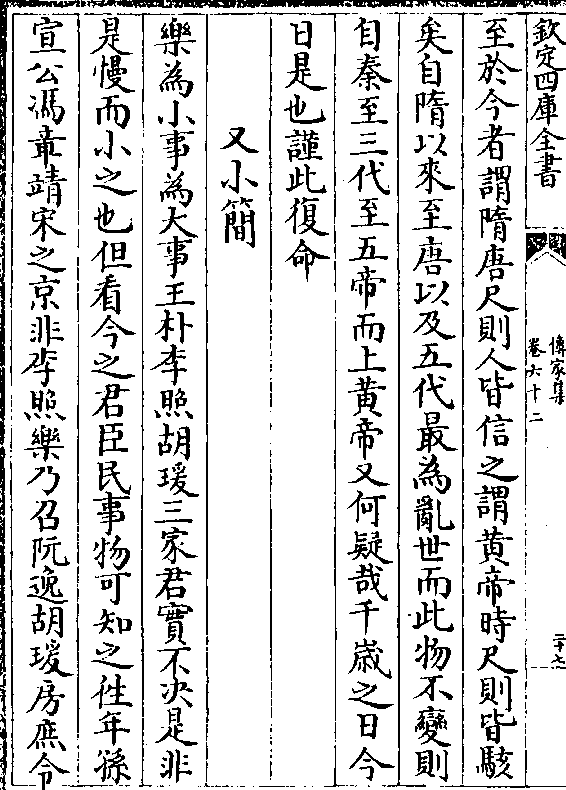 欽定四庫全書
傳家集
卷六十二
二十七
至於今者謂隋唐尺則人皆信之謂黄帝時尺則皆駭
矣自隋以來至唐以及五代最為亂世而此物不變則
自秦至三代至五帝而上黄帝又何疑哉千歳之日今
日是也謹此復命
又小簡
樂為小事為大事王朴李照胡瑗三家君實不决是非
是慢而小之也但看今之君臣民事物可知之徃年孫
宣公馮章靖宋之京非李照樂乃召阮逸胡瑗房庶令